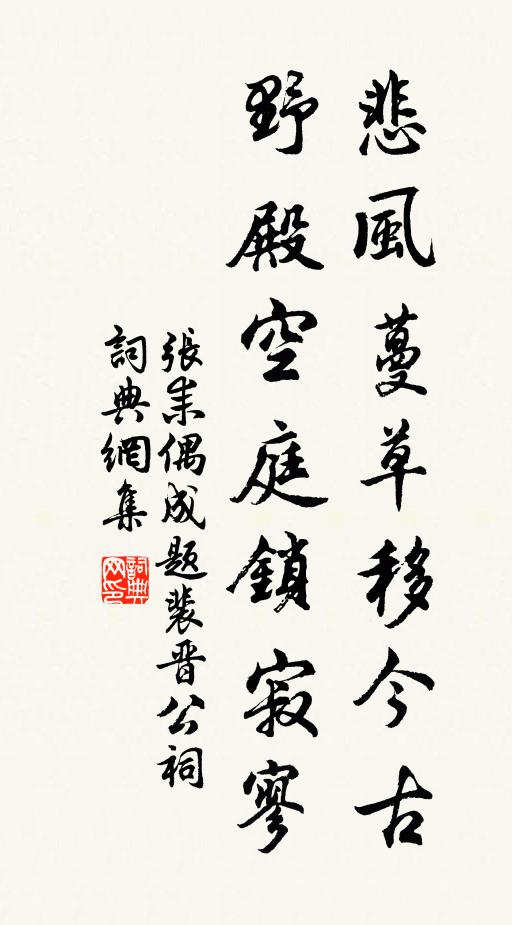 悲風蔓草移今古
野殿空庭鎖寂寥
張耒偶成题裴晋公祠
詞典網集
詞典網印